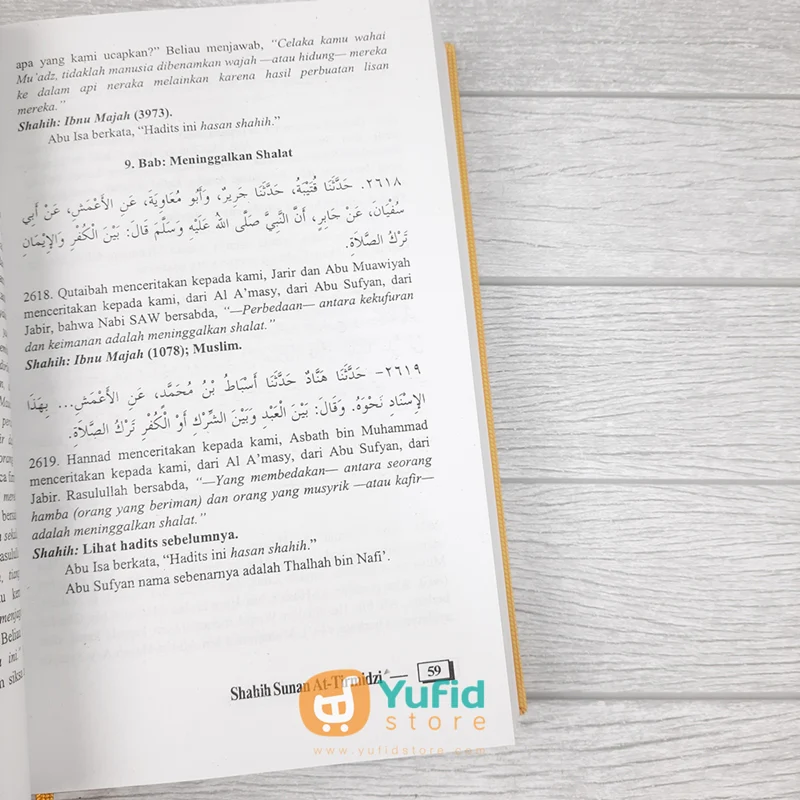 apa yang kami ucapkan?" Beliau menjawab, "Celaka kamu wahai
Mu'adz, tidaklah manusia dibenamkan wajah —atau hidung— mereka
ke dalam api neraka melainkan karena hasil perbuatan lisan
mereka."
Shahih: Ibnu Majah (3973).
Abu Isa berkata, "Hadits ini hasan shahih."
9. Bab: Meninggalkan Shalat
٢٦١٨. حَدَّثَنَا قُتَيْبَةُ، حَدَّثَنَا جَرِيرٌ، وَأَبُو مُعَاوِيَةَ، عَنِ الأَعْمَشِ، عَنْ أَبِي
سُفْيَانَ، عَنْ جَابِرٍ، أَنَّ النَّبِيَّ صَلَّى اللهُ عَلَيْهِ وَسَلَّمَ قَالَ: بَيْنَ الْكُفْرِ وَالإِيْمَانِ
تَرْكُ الصَّلاَةِ.
2618. Qutaibah menceritakan kepada kami, Jarir dan Abu Muawiyah
menceritakan kepada kami, dari Al A'masy, dari Abu Sufyan, dari
Jabir, bahwa Nabi SAW bersabda, "—Perbedaan— antara kekufuran
dan keimanan adalah meninggalkan shalat."
Shahih: Ibnu Majah (1078); Muslim.
٢٦١٩- حَدَّثَنَا هَنَّادٌ حَدَّثَنَا أَسْبَاطُ بْنُ مُحَمَّدٍ، عَنِ الأَعْمَشِ... بِهَذَا
الإِسْنَادِ نَحْوَهُ. وَقَالَ: بَيْنَ الْعَبْدِ وَبَيْنَ الشِّرْكِ أَوْ الْكُفْرِ تَرْكُ الصَّلاَةِ.
2619. Hannad menceritakan kepada kami, Asbath bin Muhammad
menceritakan kepada kami, dari Al A'masy, dari Abu Sufyan, dari
Jabir. Rasulullah bersabda, "—Yang membedakan— antara seorang
hamba (orang yang beriman) dan orang yang musyrik —atau kafir—
adalah meninggalkan shalat."
Shahih: Lihat hadits sebelumnya.
Abu Isa berkata, "Hadits ini hasan shahih."
Abu Sufyan nama sebenarnya adalah Thalhah bin Nafi'.
Shahih Sunan At-Tirmidzi — 59
YuFid
store
www.yufidstore.com